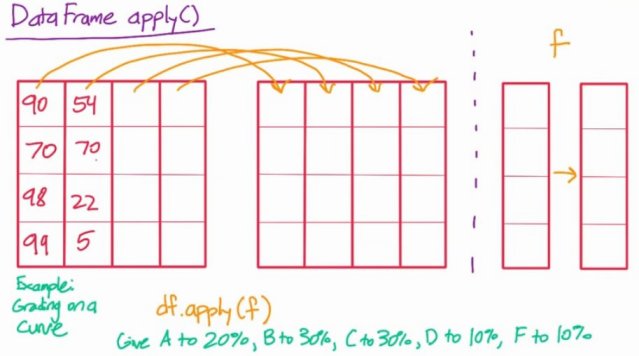 DataFrame apply()
f
90 54
70 70
98 22
99 5
Example:
Grading on a
Curve
df.apply(f)
Give A to 20%, B to 30%, C to 30%, D to 10%, F to 10%